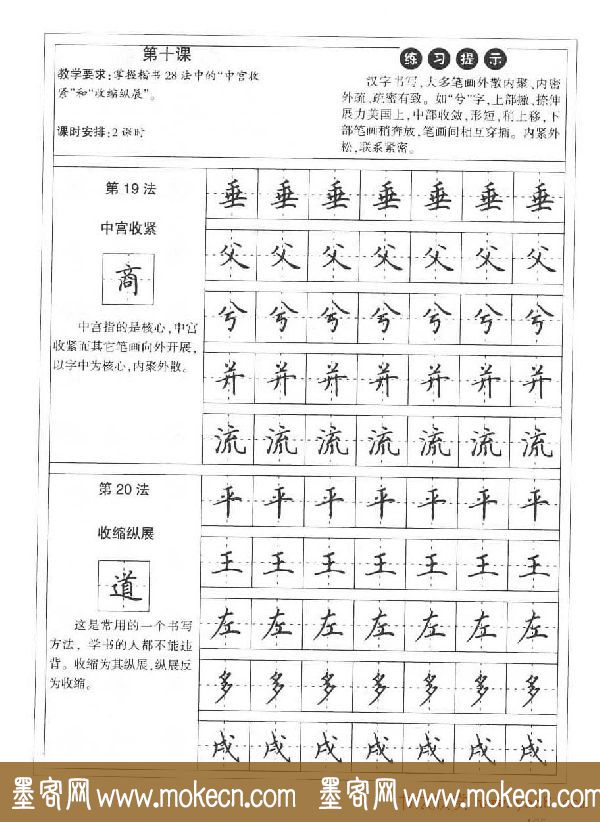 第十课
教学要求：掌握楷书28法中的“中宫收
紧”和“收缩纵展”。
课时安排：2课时
练习提示
汉字书写，大多笔画外散内聚，内密
外疏，疏密有致。如“兮”字，上部撇、捺伸
展力美国上，中部收敛，形短，稍上移，下
部笔画稍奔放，笔画间相互穿插。内紧外
松，联系紧密。
第19法
中宫收紧
商
中宫指的是核心，中宫
收紧而其它笔画向外开展，
以字中为核心，内聚外散。
垂垂垂垂垂垂垂
父父父父父父父
兮兮兮兮兮兮兮
并并并并并并并
流流流流流流流
第20法
收缩纵展
道
这是常用的一个书写
方法，学书的人都不能违
背。收缩为其纵展，纵展反
为收缩。
平平平平平平平
王王王王王王王
左左左左左左左
多多多多多多多
成成成成成成成
墨客网 www.mokecn.com 墨客网 www.mokecn.com